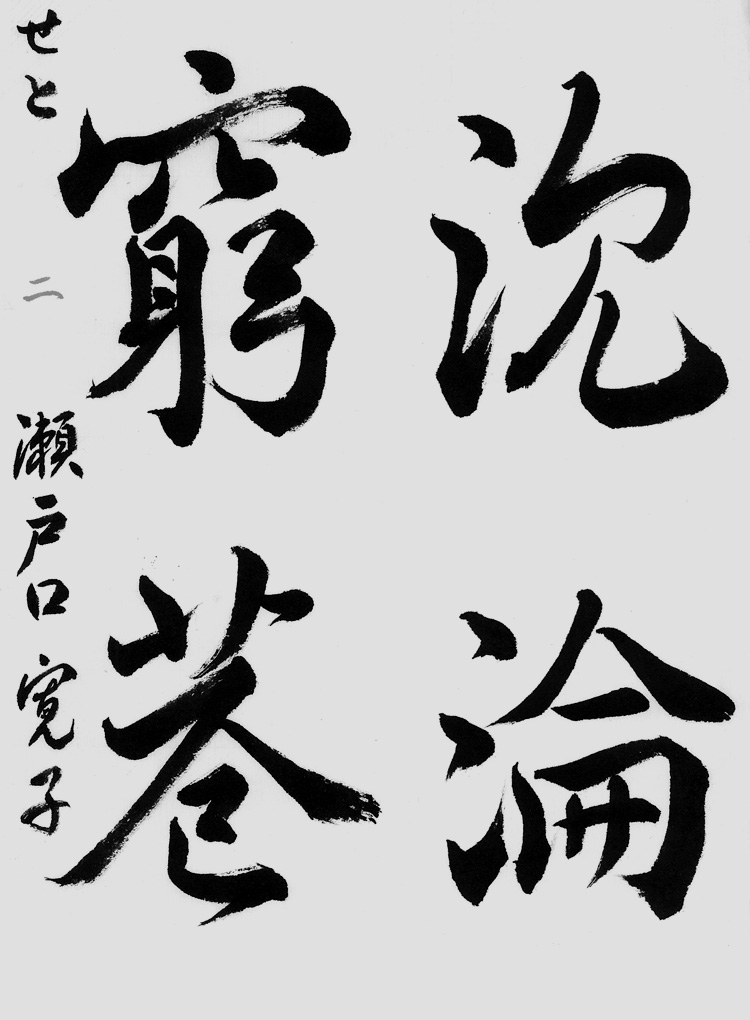 沈淪
窮巷
せと 二 瀬戸口寛子